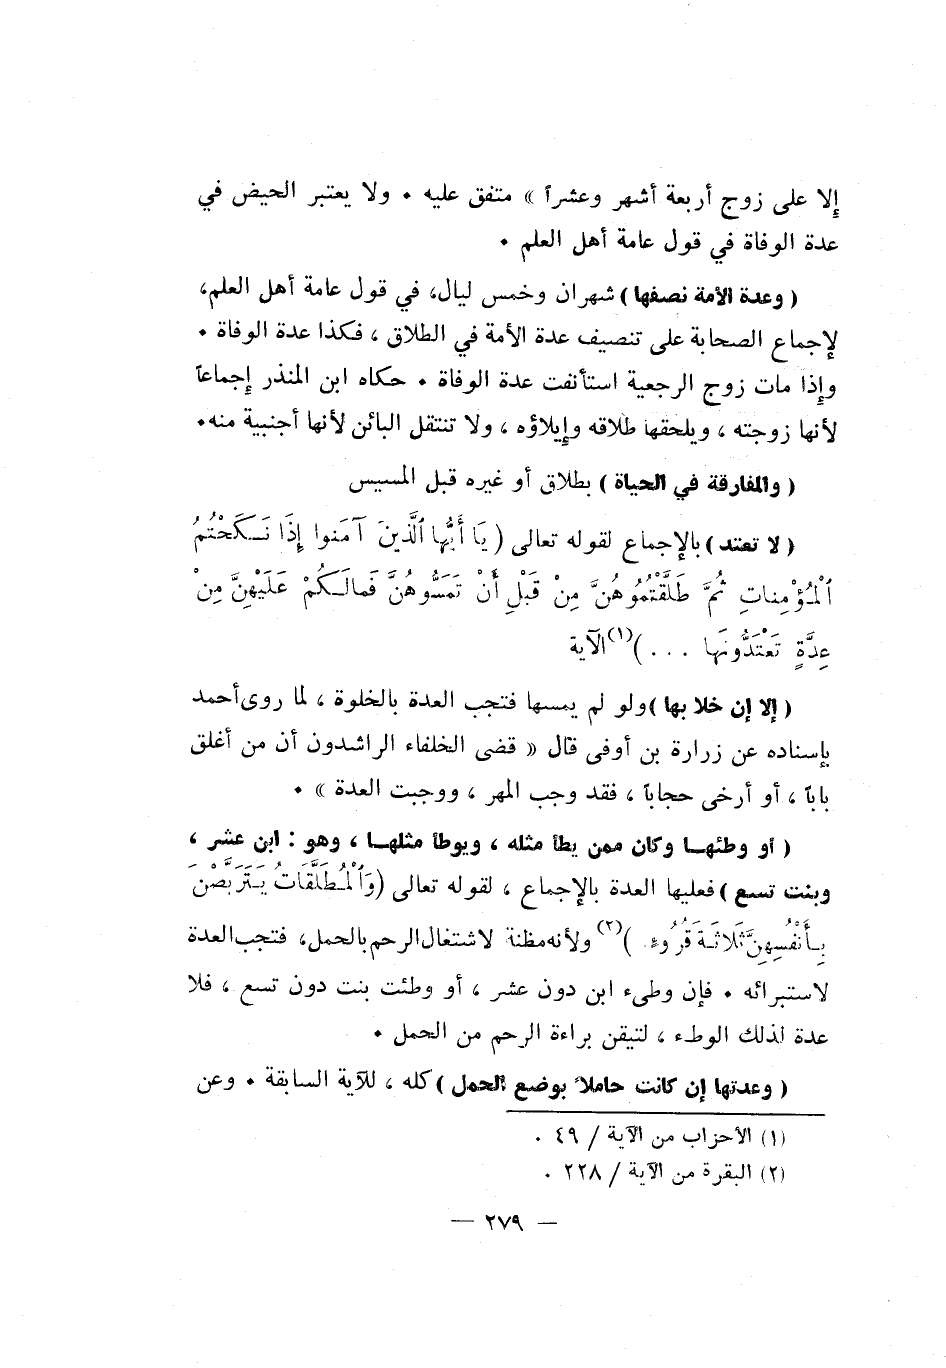 إلا على زوج أربعة أشهر وعشراً » متفق عليه ٠ ولا يعتبر الحيض في
عدة الوفاة في قول عامة أهل العلم ٠
( وعدة الأمة نصفها ) شهران وخمس ليال، في قول عامة أهل العلم،
لإجماع الصحابة على تنصيف عدة الأمة في الطلاق ، فكذا عدة الوفاة ٠
وإذا مات زوج الرجعية استأنفت عدة الوفاة ٠ حكاه ابن المنذر إجماعاً
لأنها زوجته ، ويلحقها طلاقه وإيلاؤه ، ولا تنتقل البائن لأنها أجنبية منه٠
( والمفارقة في الحياة ) بطلاق أو غيره قبل المسيس
( لا تعتد ) بالإجماع لقوله تعالى ( يَا أَيُّهَا ٱلَّذِينَ آمَنوا إِذَا نَـكَحْتُمُ
ٱلْمُؤْمِناتِ ثُمَّ طَلَّقْتُمُوهُنَّ مِنْ قَبْلِ أَنْ تَمَسُّوهُنَّ فَمالَـكُمْ عَلَيْهِنَّ مِنْ
عِدَّةٍ تَعْتَدُّونَها ... )(١) الآية
( إلا إن خلا بها ) ولو لم يمسها فتجب العدة بالخلوة ، لما روى أحمد
بإسناده عن زرارة بن أوفى قال « قضى الخلفاء الراشدون أن من أغلق
باباً ، أو أرخى حجاباً ، فقد وجب المهر ، ووجبت العدة » ٠
( أو وطئهـا وكان ممن يطأ مثله ، ويوطأ مثلهـا ، وهو : ابن عشر ،
وبنت تسع ) فعليها العدة بالإجماع ، لقوله تعالى ( وَٱلْمُطَلَّقَاتُ يَـتَرَبَّصْنَ
بِـأَنْفُسِهِنَّ ثَلَاثَـةَ قُرُوءٍ. )(٢) ولأنه مظنة لاشتغال الرحم بالحمل، فتجب العدة
لاستبرائه ٠ فإن وطىء ابن دون عشر ، أو وطئت بنت دون تسع ، فلا
عدة لذلك الوطء ، لتيقن براءة الرحم من الحمل ٠
( وعدتها إن كانت حاملاً بوضع الحمل ) كله ، للآية السابقة ٠ وعن
(١) الأحزاب من الآية / ٤٩ .
(٢) البقرة من الآية / ٢٢٨ ٠
— ٢٧٩ —